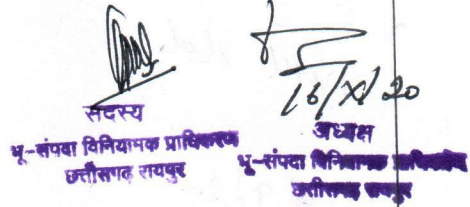 16/X/20
सदस्य
भू-संपदा विनियामक प्राधिकरण
छत्तीसगढ़ रायपुर
अध्यक्ष
भू-संपदा विनियामक प्राधिकरण
छत्तीसगढ़ रायपुर